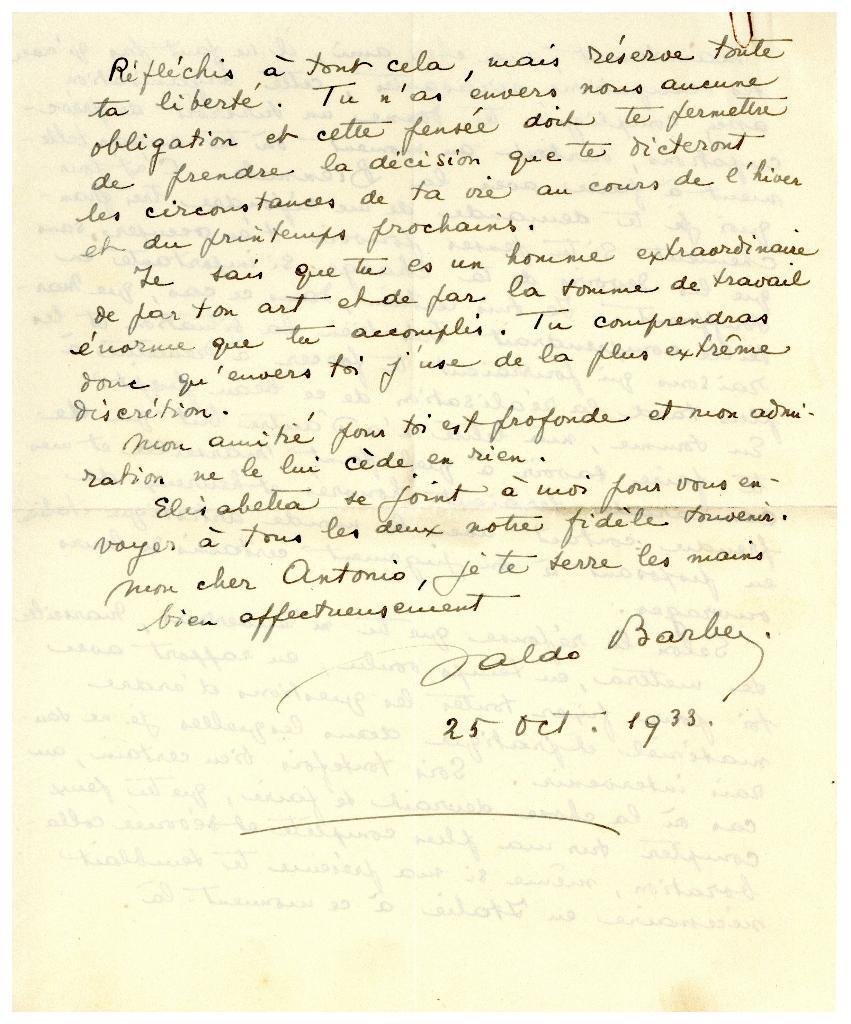 Réfléchis à tout cela, mais réserve toute
ta liberté. Tu n'as envers nous aucune
obligation et cette pensée doit te permettre
de prendre la décision que te dicteront
les circonstances de ta vie au cours de l'hiver
et du printemps prochains.
Je sais que tu es un homme extraordinaire
de par ton art et de par la somme de travail
énorme que tu accomplis. Tu comprendras
donc qu'envers toi j'use de la plus extrême
discrétion.
Mon amitié pour toi est profonde et mon admi-
ration ne le lui cède en rien.
Elisabetta se joint à moi pour vous en-
voyer à tous les deux notre fidèle souvenir.
Mon cher Antonio, je te serre les mains
bien affectueusement
Valdo Barbey.
25 Oct. 1933.